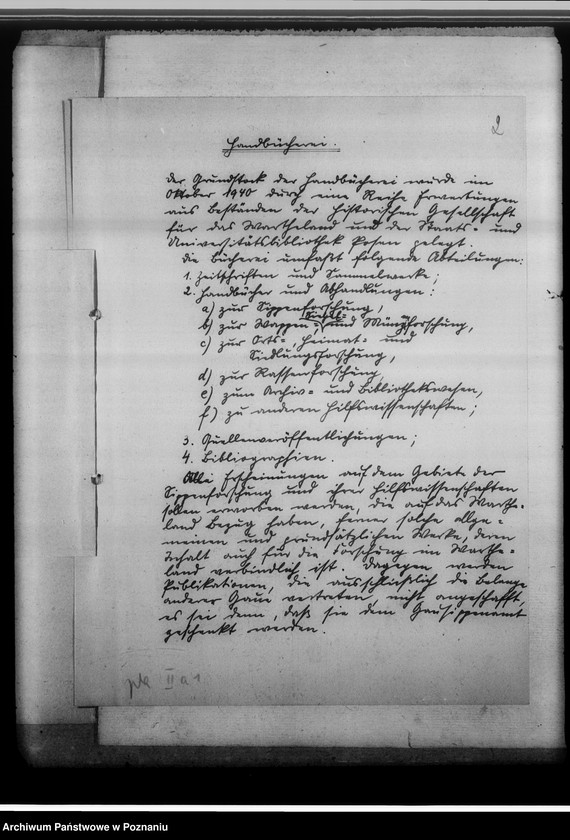 2
Handbücherei.
Der Grundstock der Handbücherei wurde im
Oktober 1940 durch eine Reihe Erwerbungen
aus Beständen der Historischen Gesellschaft
für das Wartheland und der Staats- und
Universitätsbibliothek Posen gelegt.
Die Bücherei umfaßt folgende Abteilungen:
1. Zeitschriften und Sammelwerke;
2. Handbücher und Abhandlungen:
a) zur Sippenforschung,
b) zur Wappen-, Siegel- und Münzforschung,
c) zur Orts-, Heimat- und
Siedlungsforschung,
d) zur Rassenforschung,
e) zum Archiv- und Bibliothekswesen,
f) zu anderen Hilfswissenschaften;
3. Quellenveröffentlichungen;
4. Bibliographien.
Alle Erscheinungen auf dem Gebiete der
Sippenforschung und ihrer Hilfswissenschaften
sollen erworben werden, die auf das Warthe-
land Bezug haben, ferner solche allge-
meinen und grundsätzlichen Werke, deren
Inhalt auch für die Forschung im Warthe-
land verbindlich ist. Dagegen werden
Publikationen, die ausschließlich die Belange
anderer Gaue vertreten, nicht angeschafft,
es sei denn, daß sie dem Gausippenamt
geschenkt werden.
II a 1
Archiwum Państwowe w Poznaniu